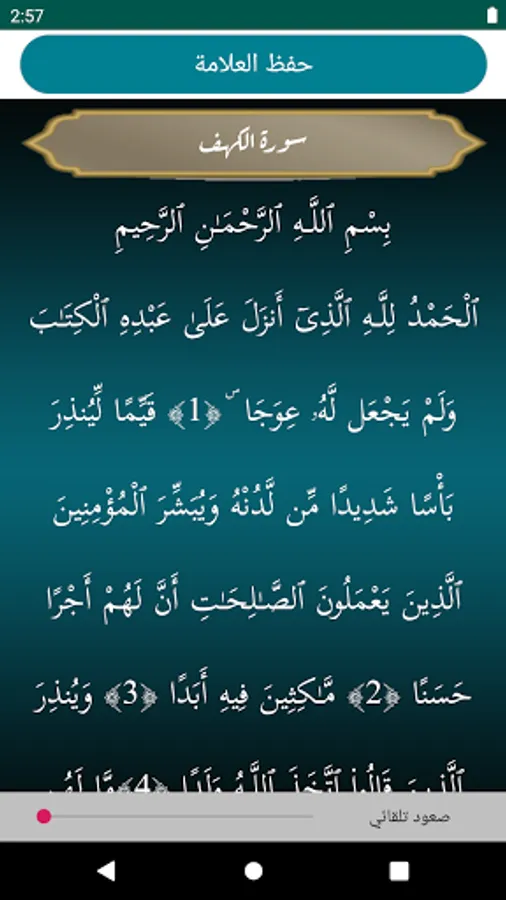 2:57
حفظ العلامة
سورة الكهف
بِسْمِ ٱللَّهِ ٱلرَّحْمَـٰنِ ٱلرَّحِيمِ
ٱلْحَمْدُ لِلَّهِ ٱلَّذِىٓ أَنزَلَ عَلَىٰ عَبْدِهِ ٱلْكِتَـٰبَ
وَلَمْ يَجْعَل لَّهُۥ عِوَجَا ۜ ﴿1﴾ قَيِّمًا لِّيُنذِرَ
بَأْسًا شَدِيدًا مِّن لَّدُنْهُ وَيُبَشِّرَ ٱلْمُؤْمِنِينَ
ٱلَّذِينَ يَعْمَلُونَ ٱلصَّـٰلِحَـٰتِ أَنَّ لَهُمْ أَجْرًا
حَسَنًا ﴿2﴾ مَّـٰكِثِينَ فِيهِ أَبَدًا ﴿3﴾ وَيُنذِرَ
ٱلَّذِينَ قَالُوا۟ ٱتَّخَذَ ٱللَّهُ وَلَدًا ﴿4﴾ مَّا لَهُم
صعود تلقائي